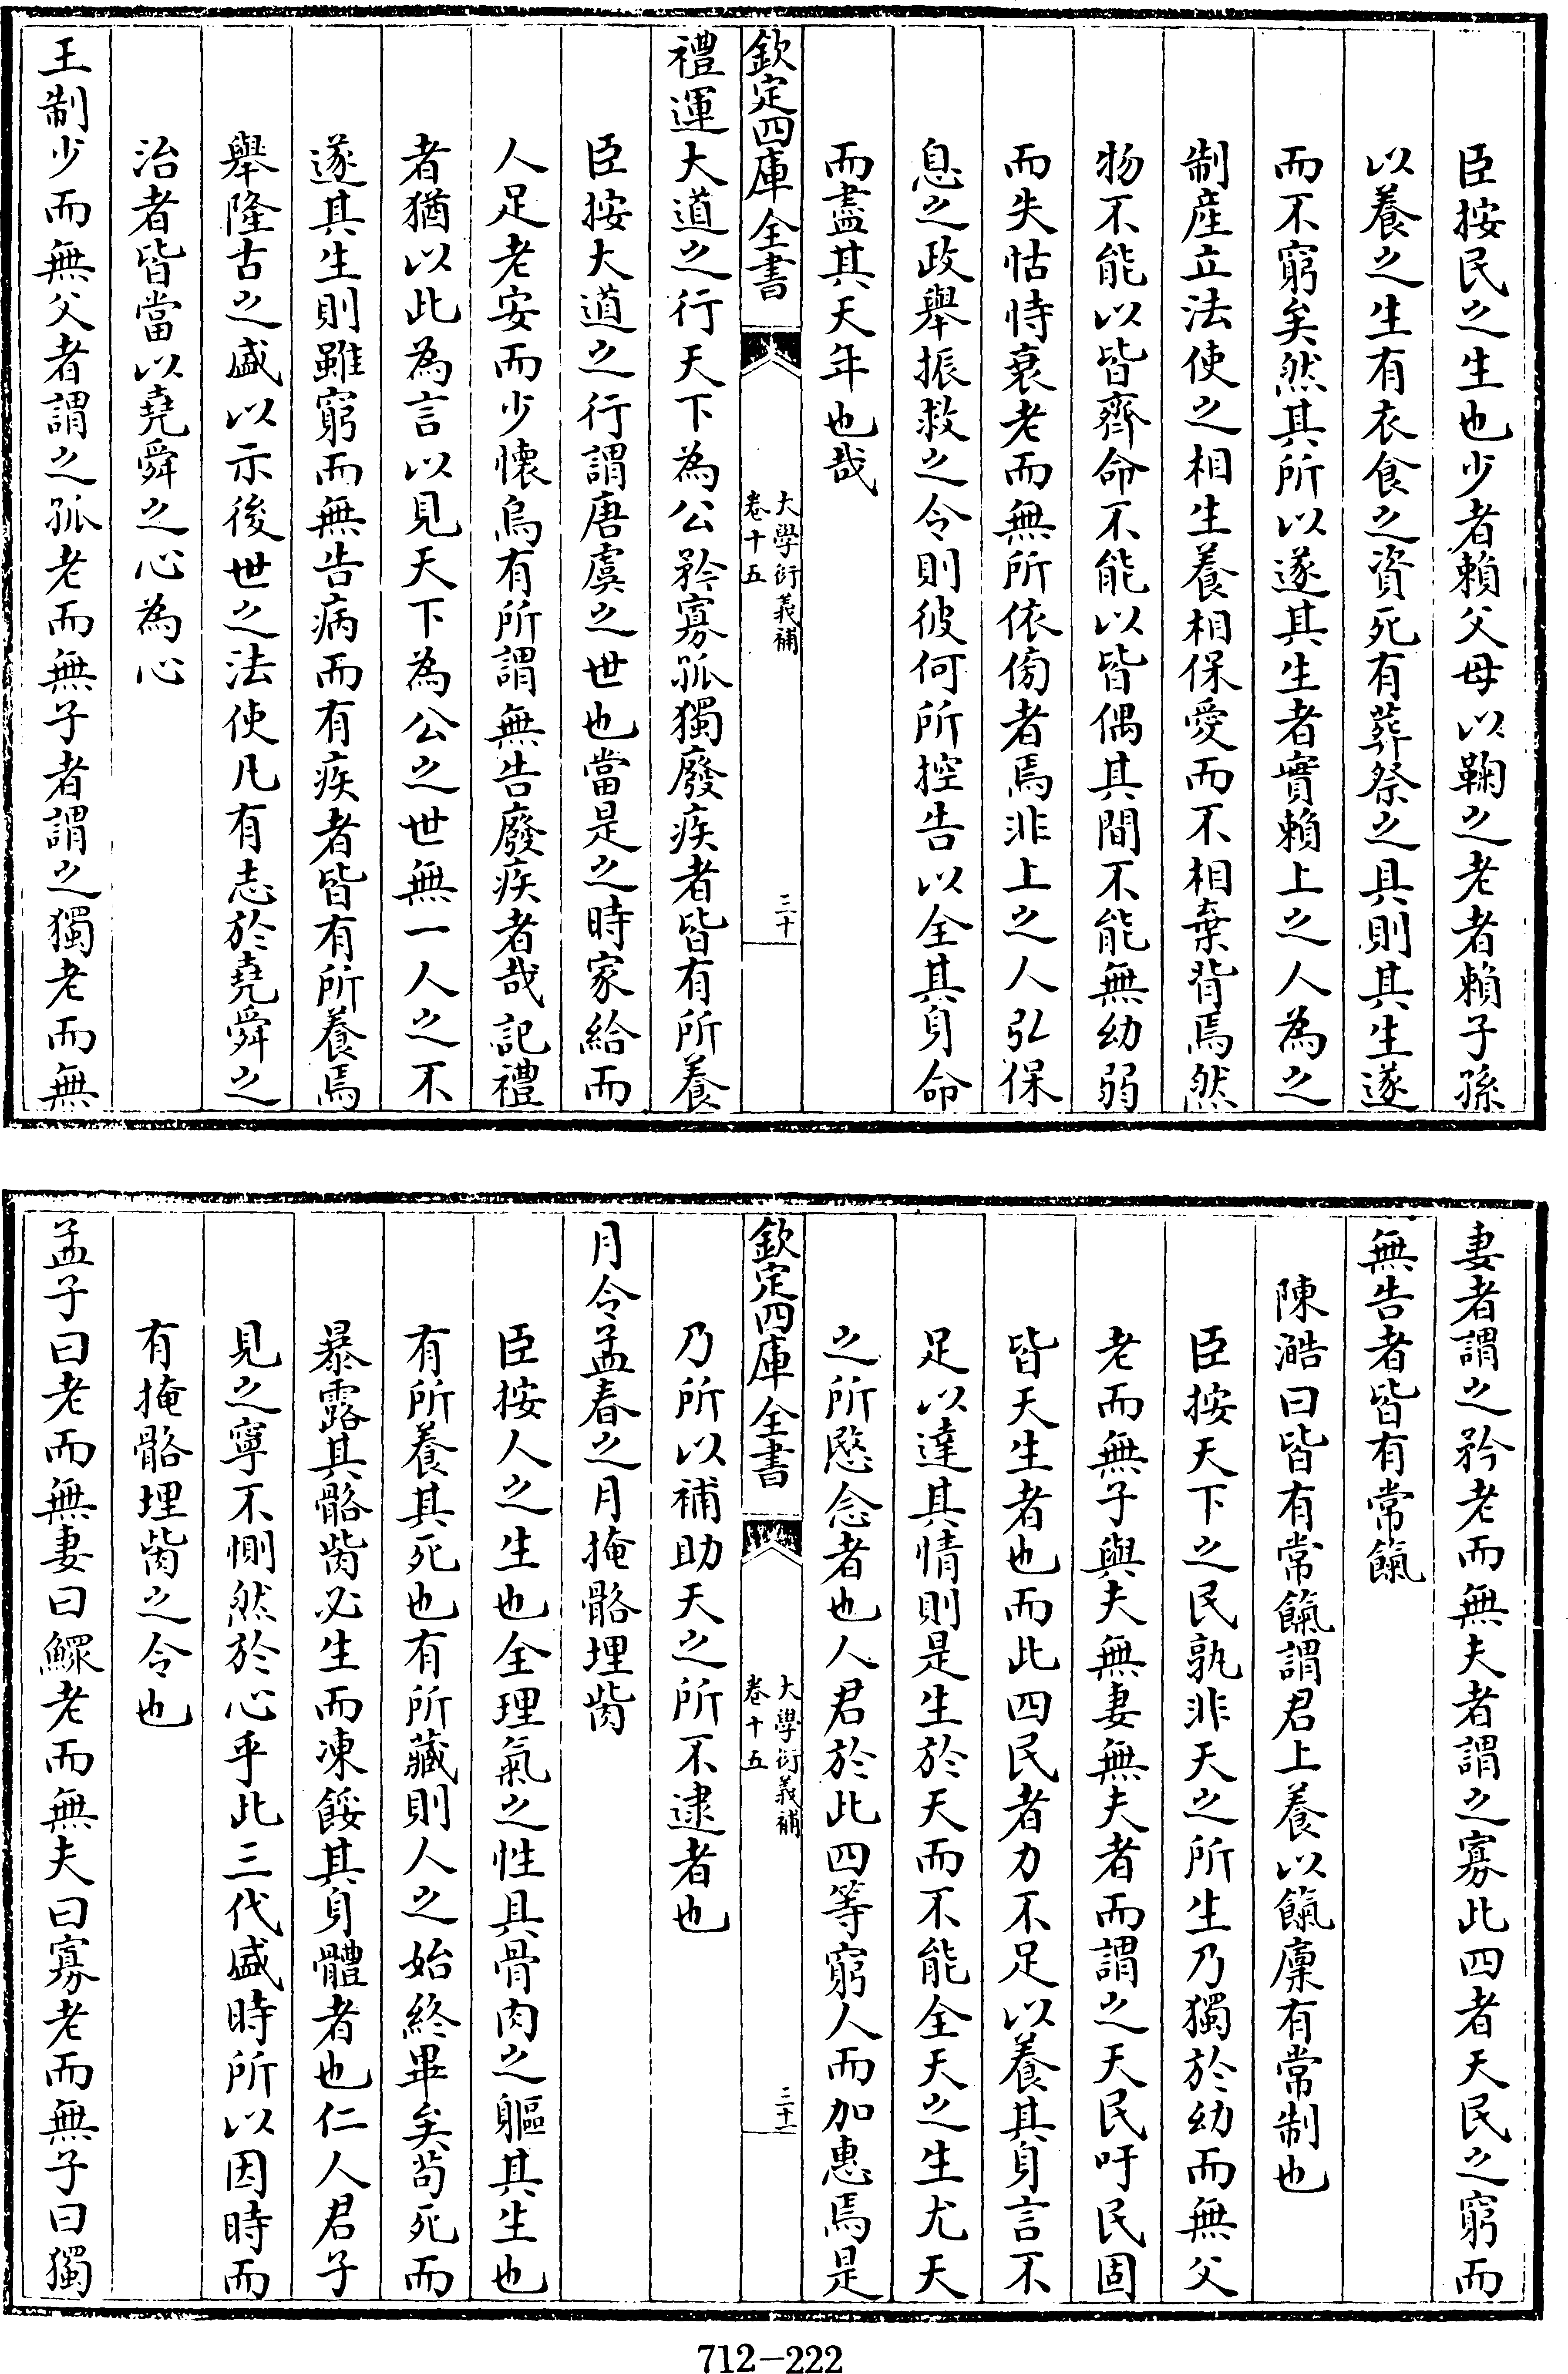 臣按民之生也少者賴父母以鞠之老者賴子孫
以養之生有衣食之資死有葬祭之具則其生遂
而不窮矣然其所以遂其生者實賴上之人為之
制產立法使之相生養相保愛而不相棄背焉然
物不能以皆齊命不能以皆偶其間不能無幼弱
而失怙恃衰老而無所依傍者焉非上之人弘保
息之政舉振救之令則彼何所控告以全其身命
而盡其天年也哉
欽定四庫全書
大學衍義補
卷十五
三十
禮運大道之行天下為公矜寡孤獨廢疾者皆有所養
臣按大道之行謂唐虞之世也當是之時家給而
人足老安而少懷烏有所謂無告廢疾者哉記禮
者猶以此為言以見天下為公之世無一人之不
遂其生則雖窮而無告病而有疾者皆有所養焉
舉隆古之盛以示後世之法使凡有志於堯舜之
治者皆當以堯舜之心為心
王制少而無父者謂之孤老而無子者謂之獨老而無
妻者謂之矜老而無夫者謂之寡此四者天民之窮而
無告者皆有常餼
陳澔曰皆有常餼謂君上養以餼廩有常制也
臣按天下之民孰非天之所生乃獨於幼而無父
老而無子與夫無妻無夫者而謂之天民吁民固
皆天生者也而此四民者力不足以養其身言不
足以達其情則是生於天而不能全天之生尤天
之所愍念者也人君於此四等窮人而加惠焉是
欽定四庫全書
大學衍義補
卷十五
三十一
乃所以補助天之所不逮者也
月令孟春之月掩骼埋胔
臣按人之生也全理氣之性具骨肉之軀其生也
有所養其死也有所藏則人之始終畢矣苟死而
暴露其骼胔必生而凍餒其身體者也仁人君子
見之寧不惻然於心乎此三代盛時所以因時而
有掩骼埋胔之令也
孟子曰老而無妻曰鰥老而無夫曰寡老而無子曰獨
712-222